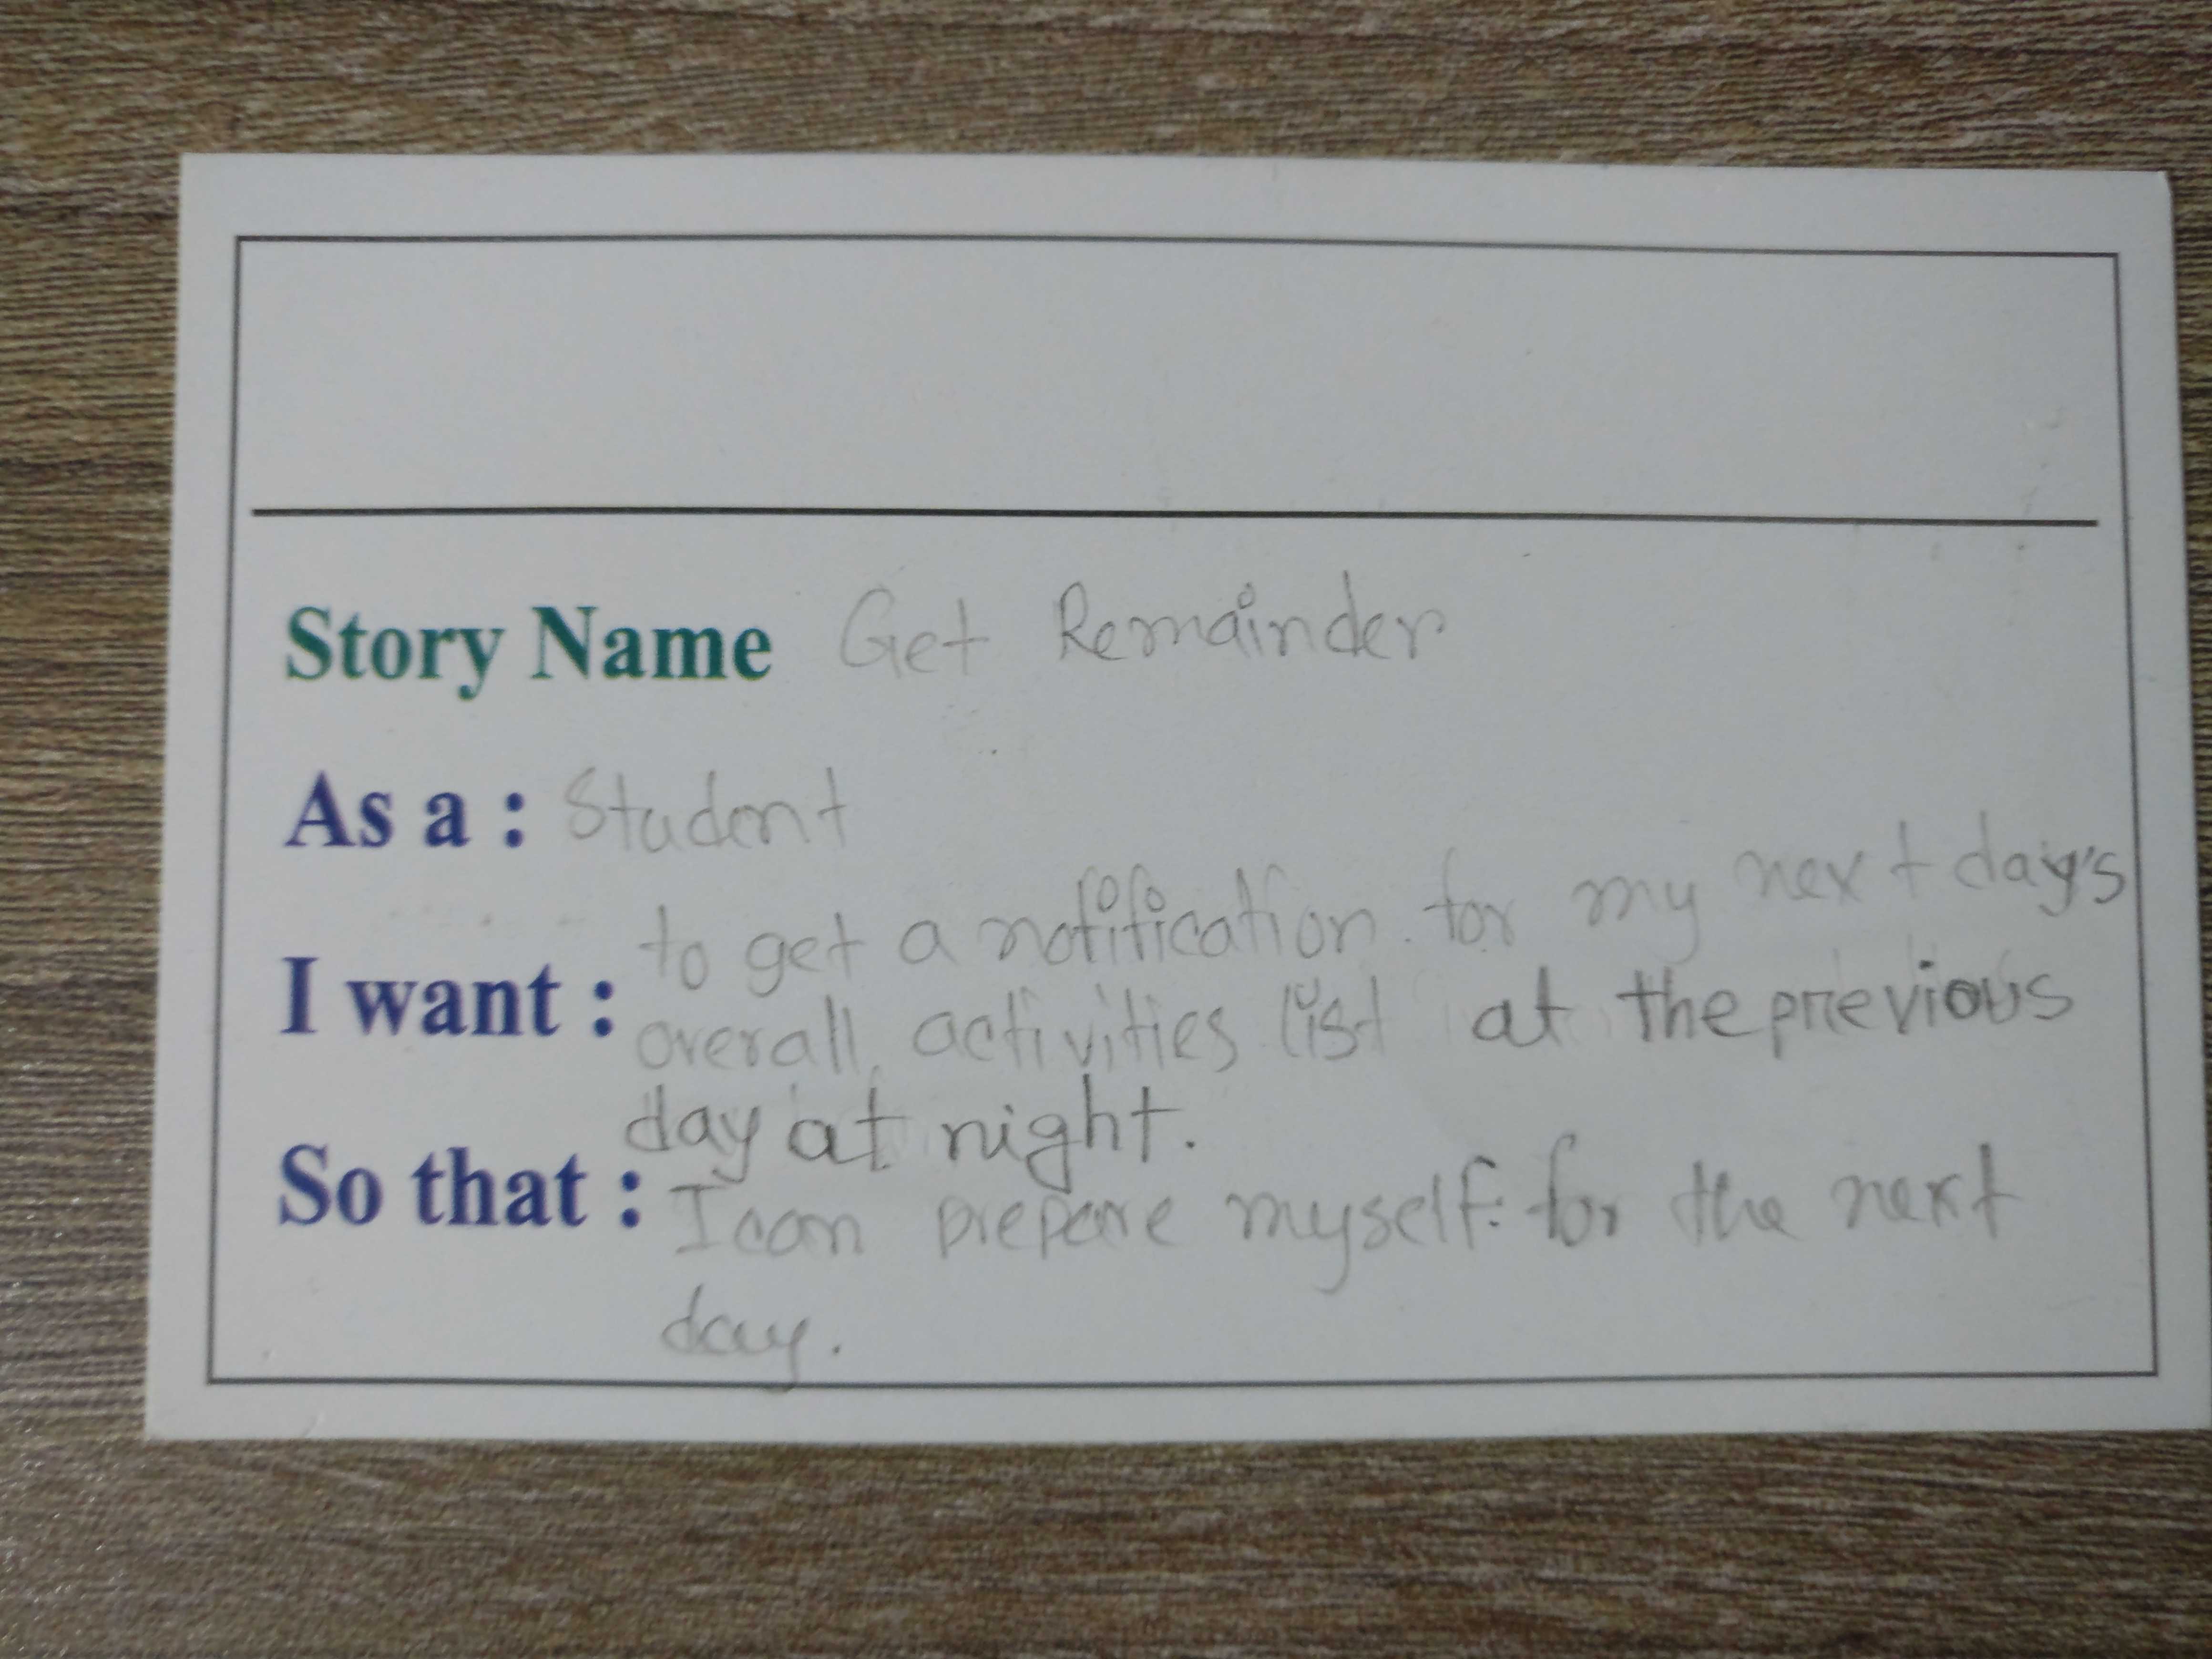 Story Name Get Remainder
As a : Student
I want : to get a notification for my next day's
overall activities list at the previous
day at night.
So that : I can prepare myself for the next
day.